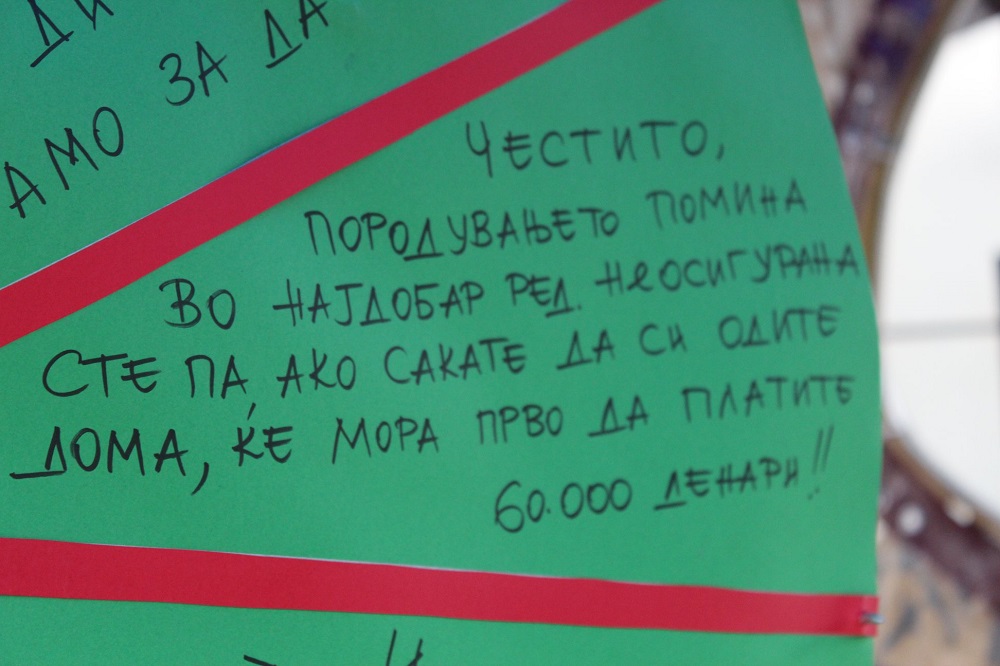 АМО ЗА ДА
ЧЕСТИТО,
ПОРОДУВАЊЕТО ПОМИНА
ВО НАЈДОБАР РЕД. НЕОСИГУРАНА
СТЕ ПА, АКО САКАТЕ ДА СИ ОДИТЕ
ДОМА, ЌЕ МОРА ПРВО ДА ПЛАТИТЕ
60.000 ДЕНАРИ!!